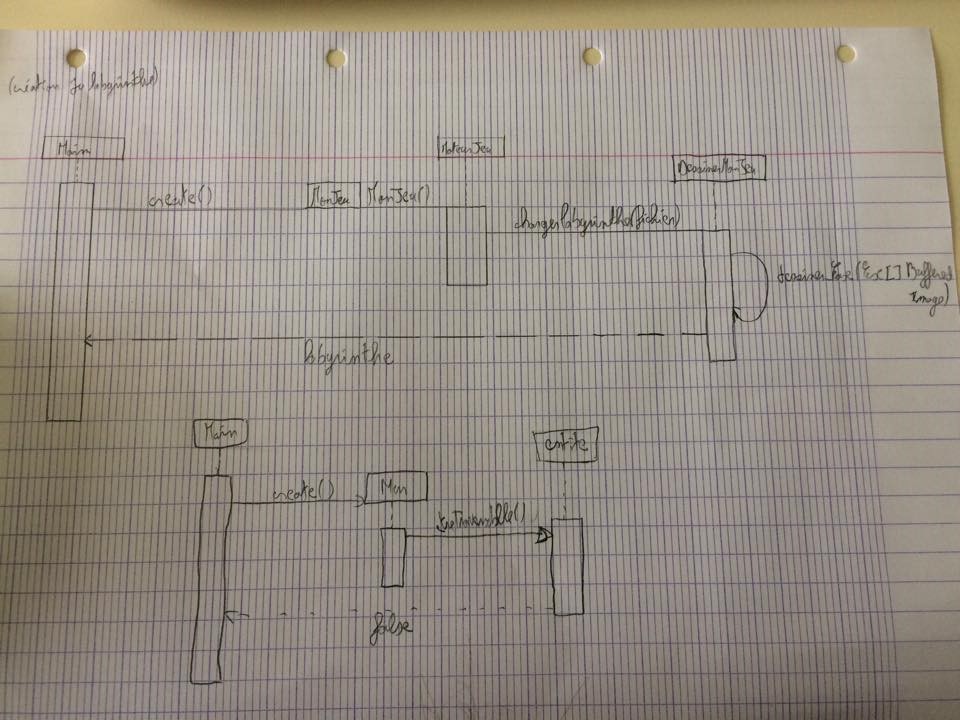 (création du labyrinthe)
Main
MoteurJeu
DessinerMonJeu
create()
MonJeu
MonJeu()
chargerlabyrinthe(fichier)
Buffered
Image)
labyrinthe
Main
entite
create()
Mur
etreTraversable()
false